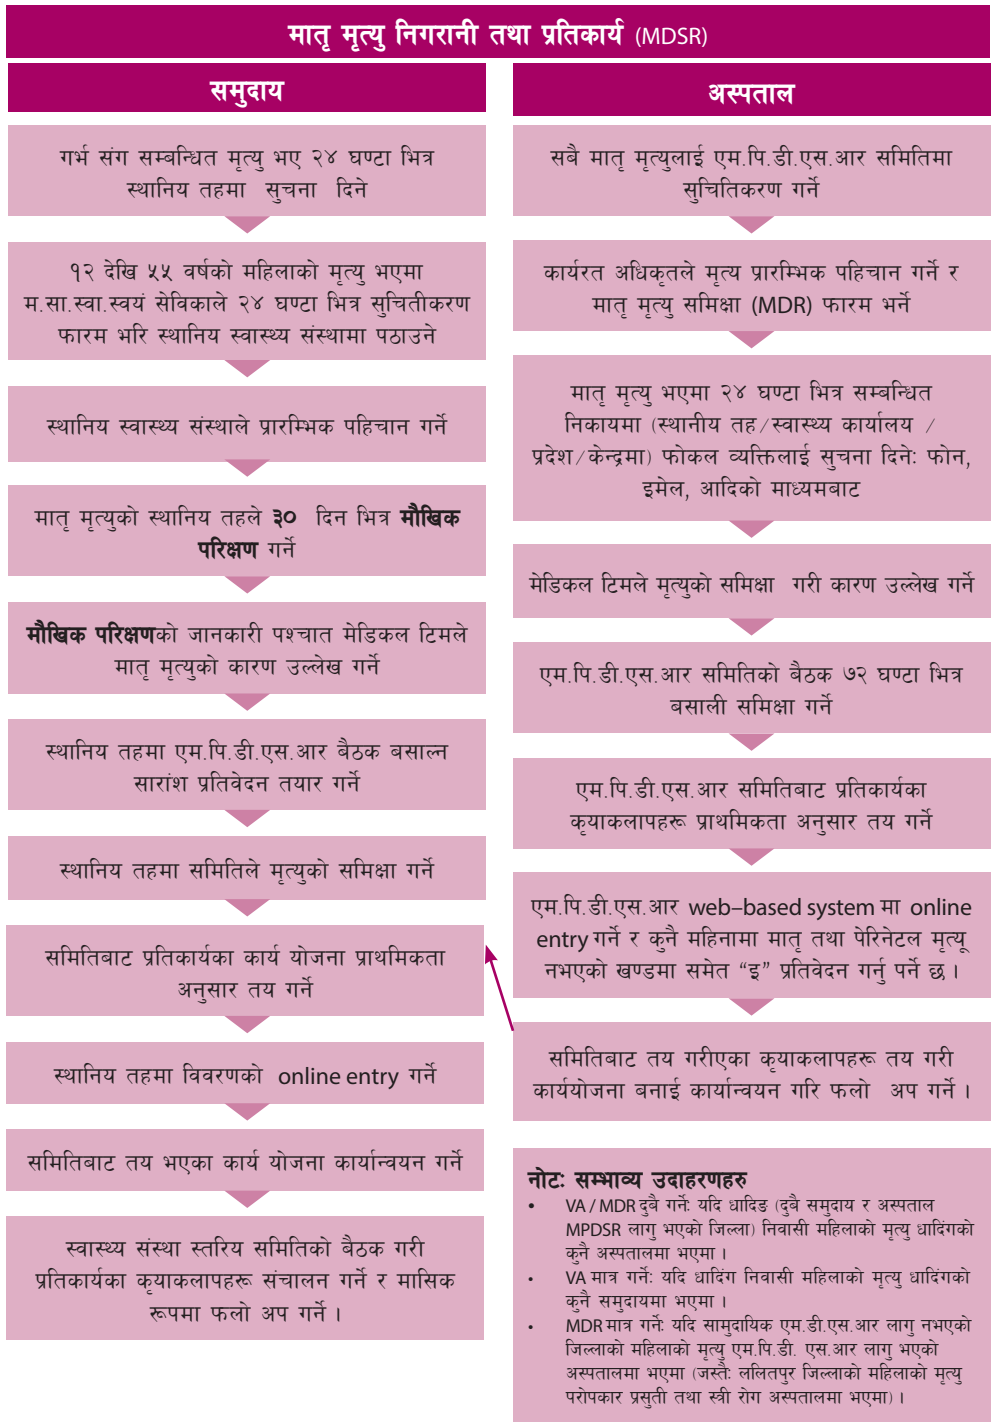 मातृ मृत्यु निगरानी तथा प्रतिकार्य (MDSR)
समुदाय
गर्भ संग सम्बन्धित मृत्यु भए २४ घण्टा भित्र
स्थानिय तहमा सुचना दिने
१२ देखि ५५ वर्षको महिलाको मृत्यु भएमा
म.सा.स्वा.स्वयं सेविकाले २४ घण्टा भित्र सुचितीकरण
फारम भरि स्थानिय स्वास्थ्य संस्थामा पठाउने
स्थानिय स्वास्थ्य संस्थाले प्रारम्भिक पहिचान गर्ने
मातृ मृत्युको स्थानिय तहले ३० दिन भित्र मौखिक
परिक्षण गर्ने
मौखिक परिक्षणको जानकारी पश्चात मेडिकल टिमले
मातृ मृत्युको कारण उल्लेख गर्ने
स्थानिय तहमा एम.पि.डी.एस.आर बैठक बसाल्न
सारांश प्रतिवेदन तयार गर्ने
स्थानिय तहमा समितिले मृत्युको समिक्षा गर्ने
समितिबाट प्रतिकार्यका कार्य योजना प्राथमिकता
अनुसार तय गर्ने
स्थानिय तहमा विवरणको online entry गर्ने
समितिबाट तय भएका कार्य योजना कार्यान्वयन गर्ने
स्वास्थ्य संस्था स्तरिय समितिको बैठक गरी
प्रतिकार्यका कृयाकलापहरू संचालन गर्ने र मासिक
रूपमा फलो अप गर्ने ।
अस्पताल
सबै मातृ मृत्युलाई एम.पि.डी.एस.आर समितिमा
सुचितिकरण गर्ने
कार्यरत अधिकृतले मृत्य प्रारम्भिक पहिचान गर्ने र
मातृ मृत्यु समिक्षा (MDR) फारम भर्ने
मातृ मृत्यु भएमा २४ घण्टा भित्र सम्बन्धित
निकायमा (स्थानीय तह/स्वास्थ्य कार्यालय /
प्रदेश/केन्द्रमा) फोकल व्यक्तिलाई सुचना दिनेः फोन,
इमेल, आदिको माध्यमबाट
मेडिकल टिमले मृत्युको समिक्षा गरी कारण उल्लेख गर्ने
एम.पि.डी.एस.आर समितिको बैठक ७२ घण्टा भित्र
बसाली समिक्षा गर्ने
एम.पि.डी.एस.आर समितिबाट प्रतिकार्यका
कृयाकलापहरू प्राथमिकता अनुसार तय गर्ने
एम.पि.डी.एस.आर web–based system मा online
entry गर्ने र कुनै महिनामा मातृ तथा पेरिनेटल मृत्यू
नभएको खण्डमा समेत “इ” प्रतिवेदन गर्नु पर्ने छ ।
समितिबाट तय गरीएका कृयाकलापहरू तय गरी
कार्ययोजना बनाई कार्यान्वयन गरि फलो अप गर्ने ।
नोटः सम्भाव्य उदाहरणहरु
• VA / MDR दुबै गर्नेः यदि धादिङ (दुबै समुदाय र अस्पताल
MPDSR लागु भएको जिल्ला) निवासी महिलाको मृत्यु धादिंगको
कुनै अस्पतालमा भएमा ।
• VA मात्र गर्नेः यदि धादिंग निवासी महिलाको मृत्यु धादिंगको
कुनै समुदायमा भएमा ।
• MDR मात्र गर्नेः यदि सामुदायिक एम.डी.एस.आर लागु नभएको
जिल्लाको महिलाको मृत्यु एम.पि.डी. एस.आर लागु भएको
अस्पतालमा भएमा (जस्तैः ललितपुर जिल्लाको महिलाको मृत्यु
परोपकार प्रसुती तथा स्त्री रोग अस्पतालमा भएमा) ।